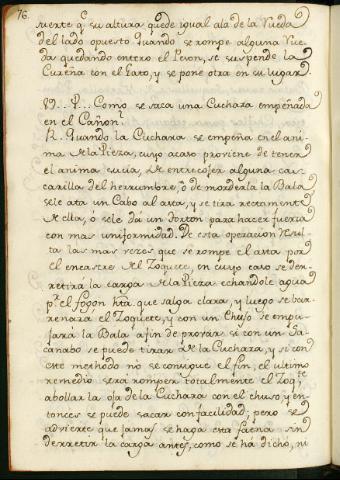 76.
suerte q.e su altura quede ygual ala de la Rueda
del lado opuesto. Quando se rompe alguna Rue-
da quedando entero el Peson, se suspende la
Cureña con el Gato, y se pone otra en su lugar.
19.. P... Como se saca una Cuchara empeñada
en el Cañon?
R. Quando la Cuchara se empeña en el ani-
ma de la Pieza, cuyo acaso proviene de tener
el anima sucia, de entrecojer alguna cas-
carilla del herrumbre, ó de morderla la Bala
sele ata un Cabo al asta, y se tira rectamente
de ella, ó sele dá un Torton para hacer fuerza
con mas uniformidad. De esta operacion Resul-
ta las mas vezes que se rompe el asta por
el encastre del Zoquete, en cuyo caso se der-
retirá la carga de la Pieza echandole agua
p.r el fogón hta. que salga clara, y luego se bar-
renará el Zoquete, y con un Chuso se empu-
jará la Bala afin de provar si con un Sa-
canabo se puede tirar de la Cuchara, y si con
este methodo no se consigue el fin, el ultimo
remedio sera romper totalmente el Zoq.te
abollar la oja de la Cuchara con el chuso, y en-
tonces se puede sacar con facilidad; pero se
advierte que jamas se haga esta faena sin
derretir la carga antes, como se há dicho, ni